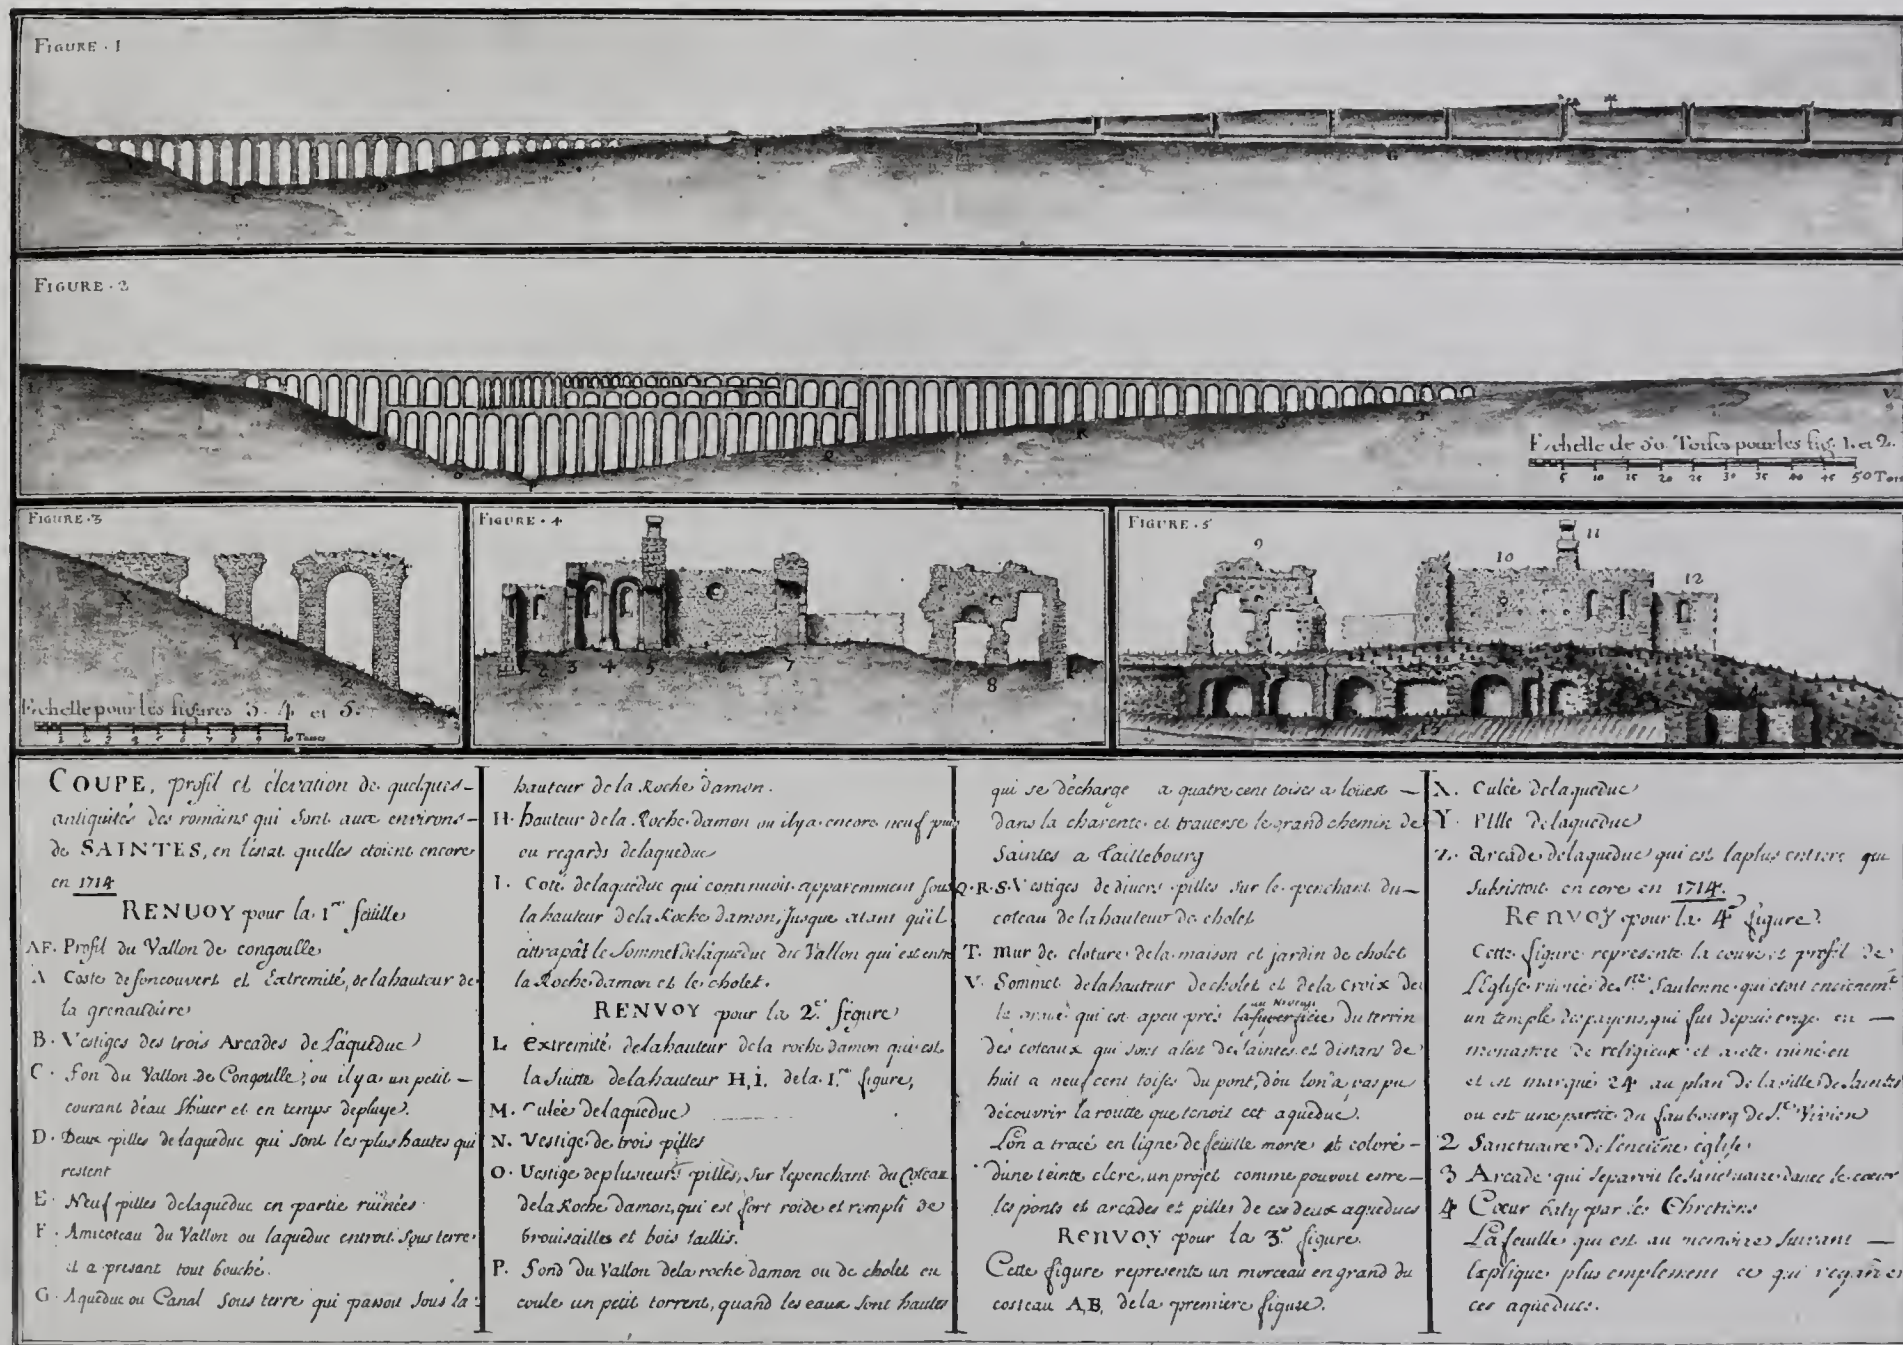 FIGURE · 1
FIGURE · 2
Echelle de 50 Toises pour les fig. 1. et 2.
5 10 15 20 25 30 35 40 45 50 Tois
FIGURE · 3
X
Y
Z
Echelle pour les figures 3. 4. et 5.
1 2 3 4 5 6 7 8 9 10 Toises
FIGURE · 4
2 3 4 5 6 7 8
FIGURE · 5
9 10 11 12
13
COUPE, profil et élevation de quelques–
antiquités des romains qui sont aux environs–
de SAINTES, en l'estat quelles etoient encore
en 1714
RENVOY pour la 1re feüille
AF. Profil du Vallon de congoulle
A Coste de foncouvert et Extremité, de la hauteur de
la grenaudiere
B · Vestiges des trois Arcades de L'aqueduc
C · fon du Vallon de Congoulle, ou il y a un petit –
courant d'eau l'hiuer et en temps depluye.
D · Deux pilles de laqueduc qui sont les plus hautes qui
restent
E · Neuf pilles delaqueduc en partie ruinées
F · Amicoteau du Vallon ou laqueduc entroit sous terre
il a presant tout bouché.
G · Aqueduc ou Canal sous terre qui passou sous la
hauteur de la Roche damon.
H · hauteur de la Roche damon ou ilya encore neuf puis
ou regards delaqueduc
I · Coté delaqueduc qui continuoit apparemment sous
la hauteur de la Roche damon, Jusque atant qu'il
attrapât le Sommet delaqueduc du Vallon qui est entre
la Roche damon et le cholet.
RENVOY pour la 2e figure
L · Extremité delahauteur dela roche damon qui est
la suitte delahauteur H, i, dela 1re figure,
M · Culée delaqueduc
N · Vestige de trois pilles
O · Vestige deplusieurs pilles, sur lepenchant du Coteau
dela Roche damon, qui est fort roide et rempli de
brouisailles et bois taillis.
P. fond du Vallon dela roche damon ou de cholet ou
coule un petit torrent, quand les eaux sont hautes
qui se décharge a quatre cent toises a loüest –
dans la charente et traverse le grand chemin de
Saintes a Taillebourg
Q · R · S · Vestiges de divers pilles sur le penchant du–
coteau de la hauteur de cholet
T. mur de cloture de la maison et jardin de cholet
V. Sommet delahauteur de cholet et de la croix de
qui est apeu près au niveau du terrin
des coteaux qui sont alest de Saintes et distans de
huit a neuf cent toises du pont, d'ou lon'a pas pu
découvrir la routte que tenoit cet aqueduc.
L'on a tracé en ligne de feuille morte et coloré –
dune teinte clere, un projet comme pouvoit estre–
les ponts et arcades et pilles de ces deux aqueducs
RENVOY pour la 3e figure.
Cette figure represente un morceau en grand du
costeau A, B, de la premiere figure.
X. Culée delaqueduc
Y · Pille delaqueduc
Z. arcade delaqueduc qui est laplus entiere qui
subsistoit encore en 1714.
RENVOY pour la 4e figure
Cette figure represente la couve et profil de
L'Eglise ruinée de Ste Saulonne qui etoit encienemt
un temple des payens, qui fut depuis erigé en –
monastere de religieux et a eté ruiné en
et est marqué 24 au plan de la ville de Saintes
ou est une partie du faubourg de St Vivien
2 Sanctuaire de l'enciene église
3 Arcade qui separoit le sanctuaire davec le coeur
4 Coeur baty par les Chretiens
La feuille qui est au memoire suivant –
l'explique plus emplement ce qui regarde
ces aqueducs.